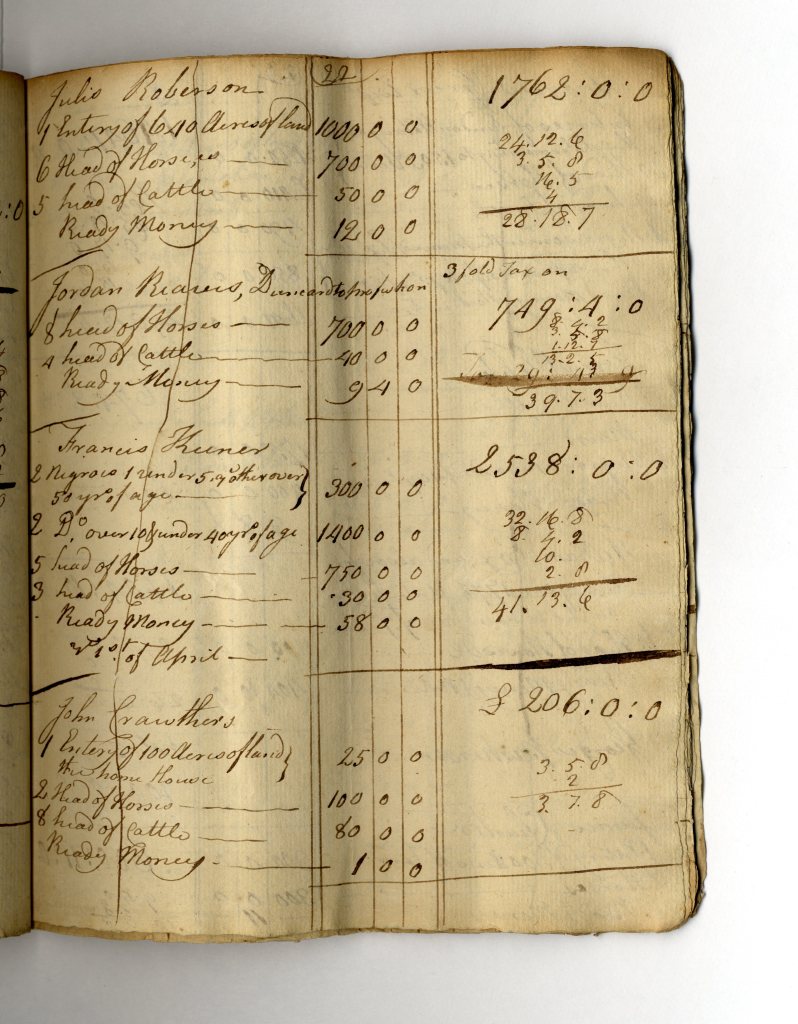 22
Julis Roberson 1762:0:0
1 Entery of 640 Acres of land 1000 0 0
24.12.6
6 Head of Horse,es 700 0 0
3.5.8
16.5
5 head of Cattle 50 0 0
4
Ready Money 12 0 0
28.18.7
Jordan Reaves, 3 fold Tax on
749:4:0
8 head of Horses 700 0 0
8.4.2
3.5.8
4 head of Cattle 40 0 0
1.12.9
13.2.5
Ready Money 9 4 0
39.7.3
Francis Keener 2538:0:0
2 Negroes 1 under 5 & ye other over
50 yrs of age 300 0 0
32.16.8
2 Do over 10 & under 40 yrs of age 1400 0 0
8.4.2
10.
5 head of Horses 750 0 0
2.8
3 head of Cattle 30 0 0
41.13.6
Ready Money 58 0 0
1st of April
John Crawthers £ 206:0:0
1 Entery of 100 Acres of land 25 0 0
the home House
3.5.8
2
2 Head of Horses 100 0 0
3.7.8
8 head of Cattle 80 0 0
Ready Money 1 0 0